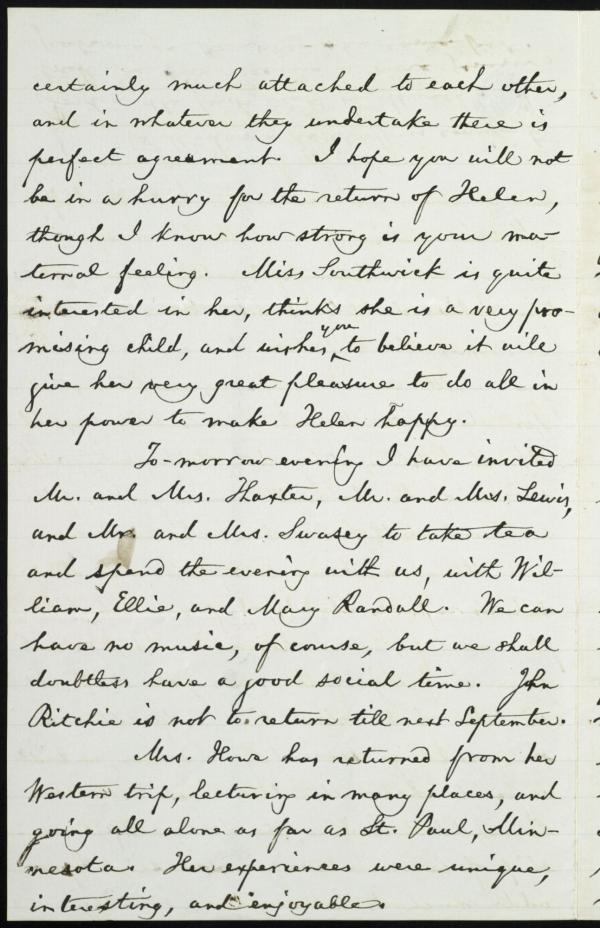 certainly much attached to each other,
and in whatever they undertake there is
perfect agreement. I hope you will not
be in a hurry for the return of Helen,
though I know how strong is your ma-
ternal feeling. Miss Southwick is quite
interested in her, thinks she is a very pro-
mising child, and wishes you to believe it will
give her very great pleasure to do all in
her power to make Helen happy.
To-morrow evening I have invited
Mr. and Mrs. Thaxter, Mr. and Mrs. Lewis,
and Mr. and Mrs. Swasey to take tea
and spend the evening with us, with Wil-
liam, Ellie, and Mary Randall. We can
have no music, of course, but we shall
doubtless have a good social time. John
Ritchie is not to return till next September.
Mrs. Howe has returned from her
Western trip, lecturing in many places, and
going all alone as far as St. Paul, Min-
nesota. Her experiences were unique,
interesting, and enjoyable.